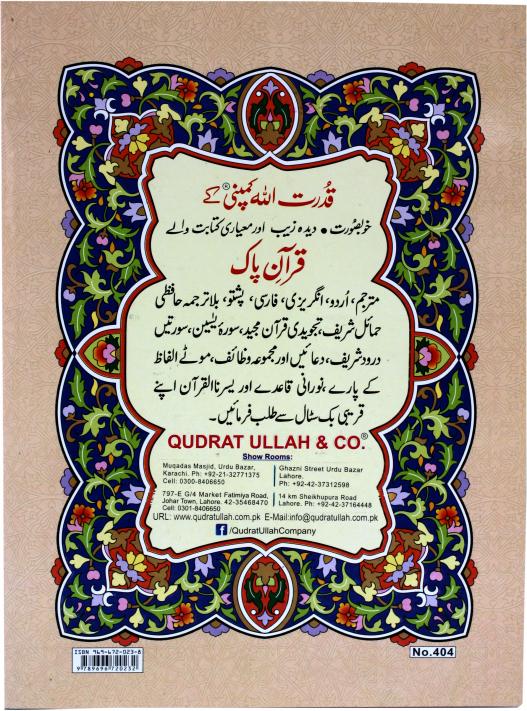 قدرت اللہ کمپنی® کے
خوبصورت • دیدہ زیب اور معیاری کتابت والے
قرآنِ پاک
مترجم، اُردو، انگریزی، فارسی، پشتو، بلاترجمہ حافظی
حمائل شریف، تجویدی قرآن مجید، سورۂ یٰسین، سورتیں
درود شریف، دعائیں اور مجموعہ وظائف، موٹے الفاظ
کے پارے، نورانی قاعدے اور یسرنا القرآن اپنے
قریبی بک سٹال سے طلب فرمائیں۔
QUDRAT ULLAH & CO.®
Show Rooms:
Muqadas Masjid, Urdu Bazar,
Karachi. Ph: +92-21-32771375
Cell: 0300-8406650
Ghazni Street Urdu Bazar
Lahore.
Ph: +92-42-37312598
797-E G/4 Market Fatimiya Road,
Johar Town, Lahore. 42-35468470
Cell: 0301-8406650
14 km Sheikhupura Road
Lahore. Ph: +92-42-37164448
URL: www.qudratullah.com.pk E-Mail:info@qudratullah.com.pk
/QudratUllahCompany
ISBN 969-672-023-8
9 789696 720232
No.404